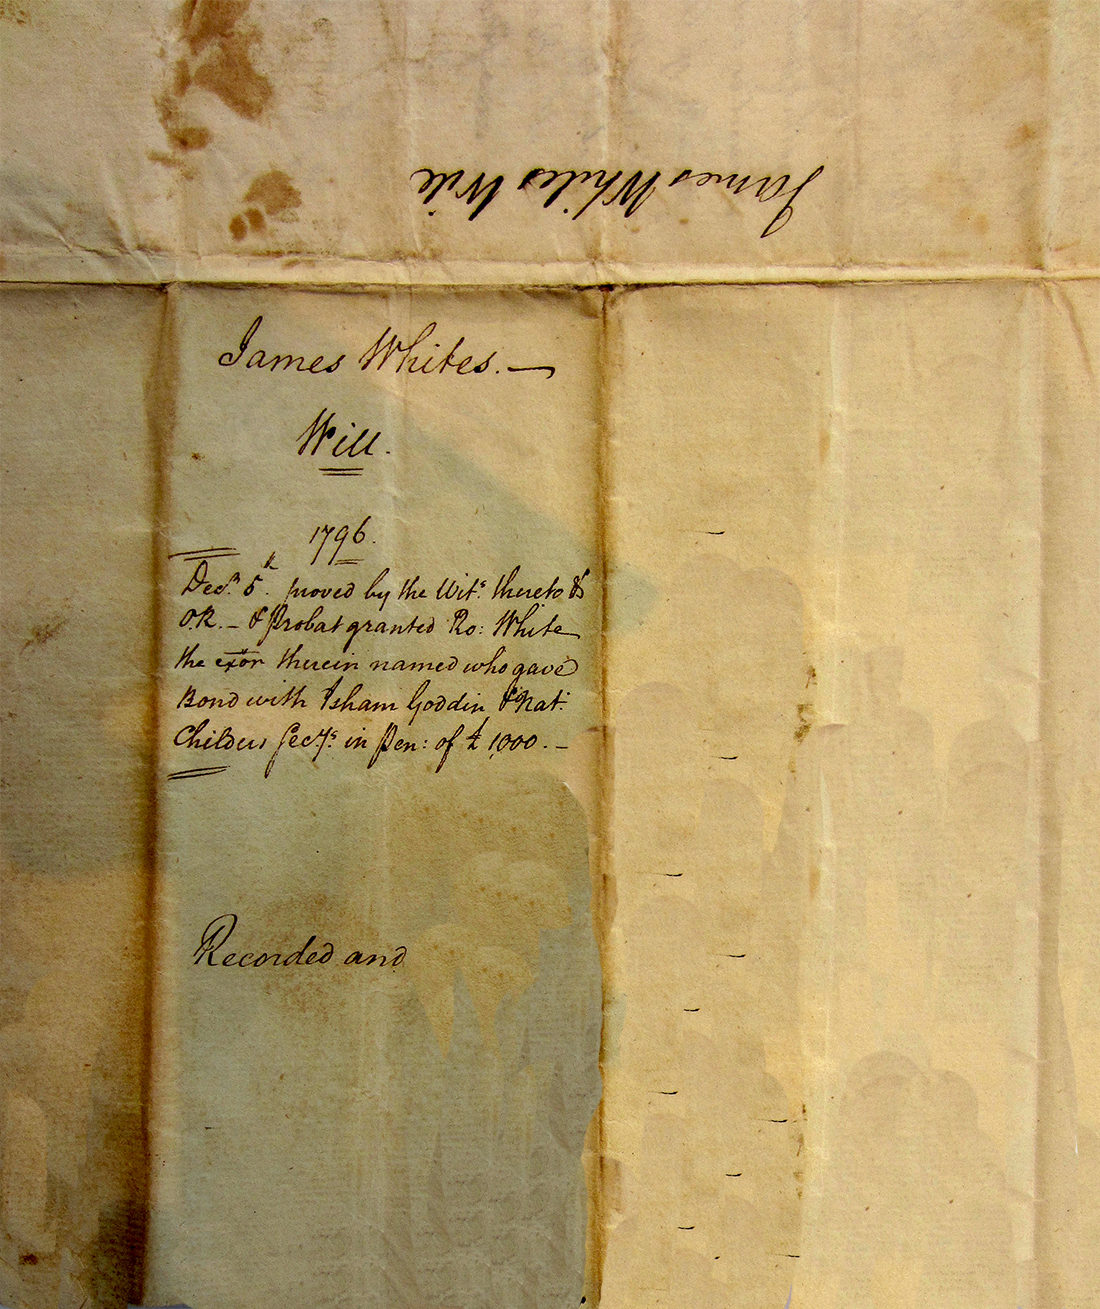 James Whites Will
James Whites. —
Will.
1796.
Decr. 5th. proved by the Wits. thereto &
O.R. — & Probat granted Ro: White
the exor therein named who gave
Bond with Isham Goddin & Nat:
Childers Secys. in Pen: of £ 1000. —
Recorded and